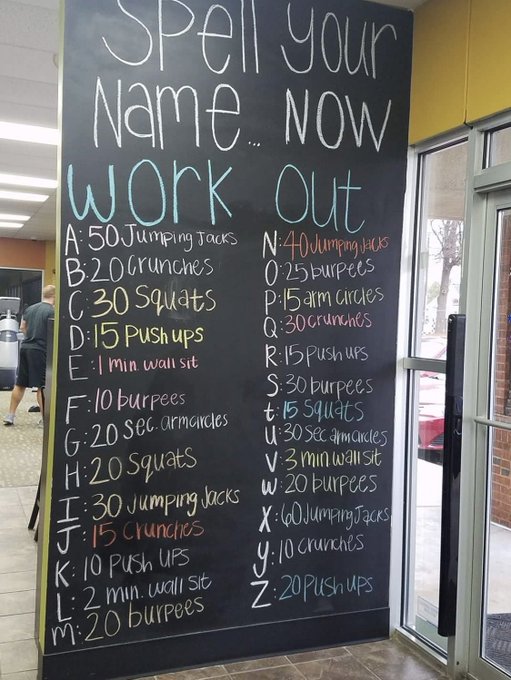 Spell your
Name... NOW
work out
A: 50 Jumping Jacks
B: 20 Crunches
C: 30 Squats
D: 15 Push ups
E: 1 min. wall sit
F: 10 burpees
G: 20 Sec. arm circles
H: 20 Squats
I: 30 Jumping Jacks
J: 15 Crunches
K: 10 Push ups
L: 2 min. wall sit
M: 20 burpees
N: 40 Jumping Jacks
O: 25 burpees
P: 15 arm circles
Q: 30 crunches
R: 15 Push ups
S: 30 burpees
t: 15 Squats
U: 30 Sec arm circles
V: 3 min. wall sit
W: 20 burpees
X: 60 Jumping Jacks
y: 10 crunches
Z: 20 Push ups